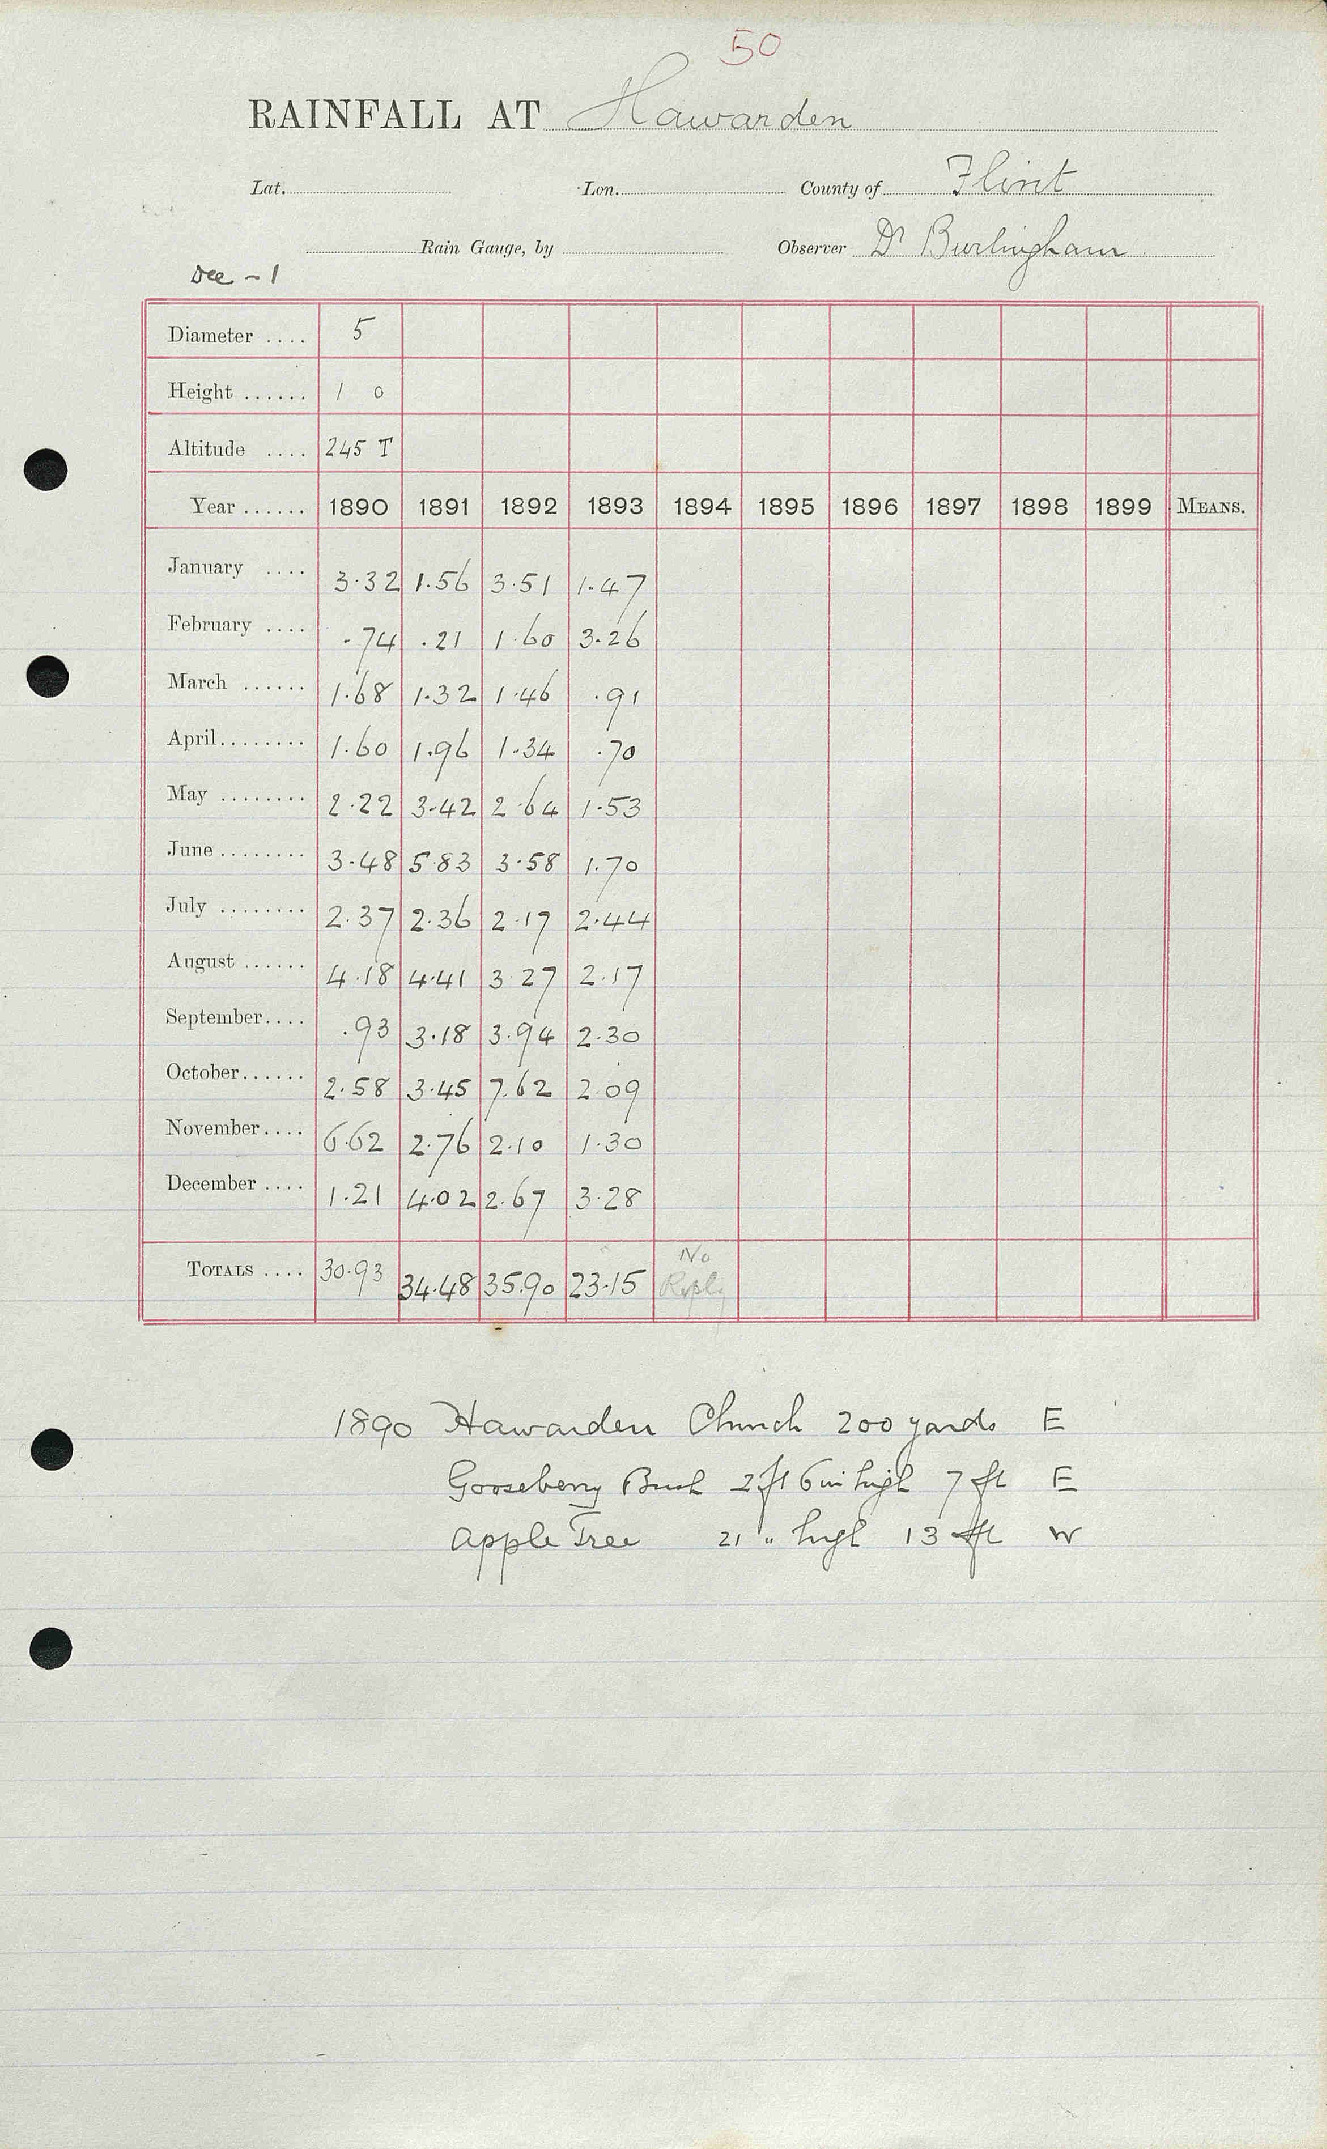 50
RAINFALL AT Hawarden
Lat. Lon. County of Flint
Rain Gauge, by Observer Dr Burlingham
Dee - 1
Diameter .... 5
Height ...... 1 0
Altitude .... 245 T
Year ...... 1890 1891 1892 1893 1894 1895 1896 1897 1898 1899 MEANS.
January .... 3.32 1.56 3.51 1.47
February .... .74 .21 1.60 3.26
March ...... 1.68 1.32 1.46 .91
April ........ 1.60 1.96 1.34 .70
May ........ 2.22 3.42 2.64 1.53
June ........ 3.48 5.83 3.58 1.70
July ........ 2.37 2.36 2.17 2.44
August ...... 4.18 4.41 3.27 2.17
September .... .93 3.18 3.94 2.30
October ...... 2.58 3.45 7.62 2.09
November .... 6.62 2.76 2.10 1.30
December .... 1.21 4.02 2.67 3.28
TOTALS .... 30.93 34.48 35.90 23.15 No Reply
1890 Hawarden Church 200 yards E
Gooseberry Bush 2 ft 6 in high 7 ft E
Apple Tree 21 " high 13 ft W